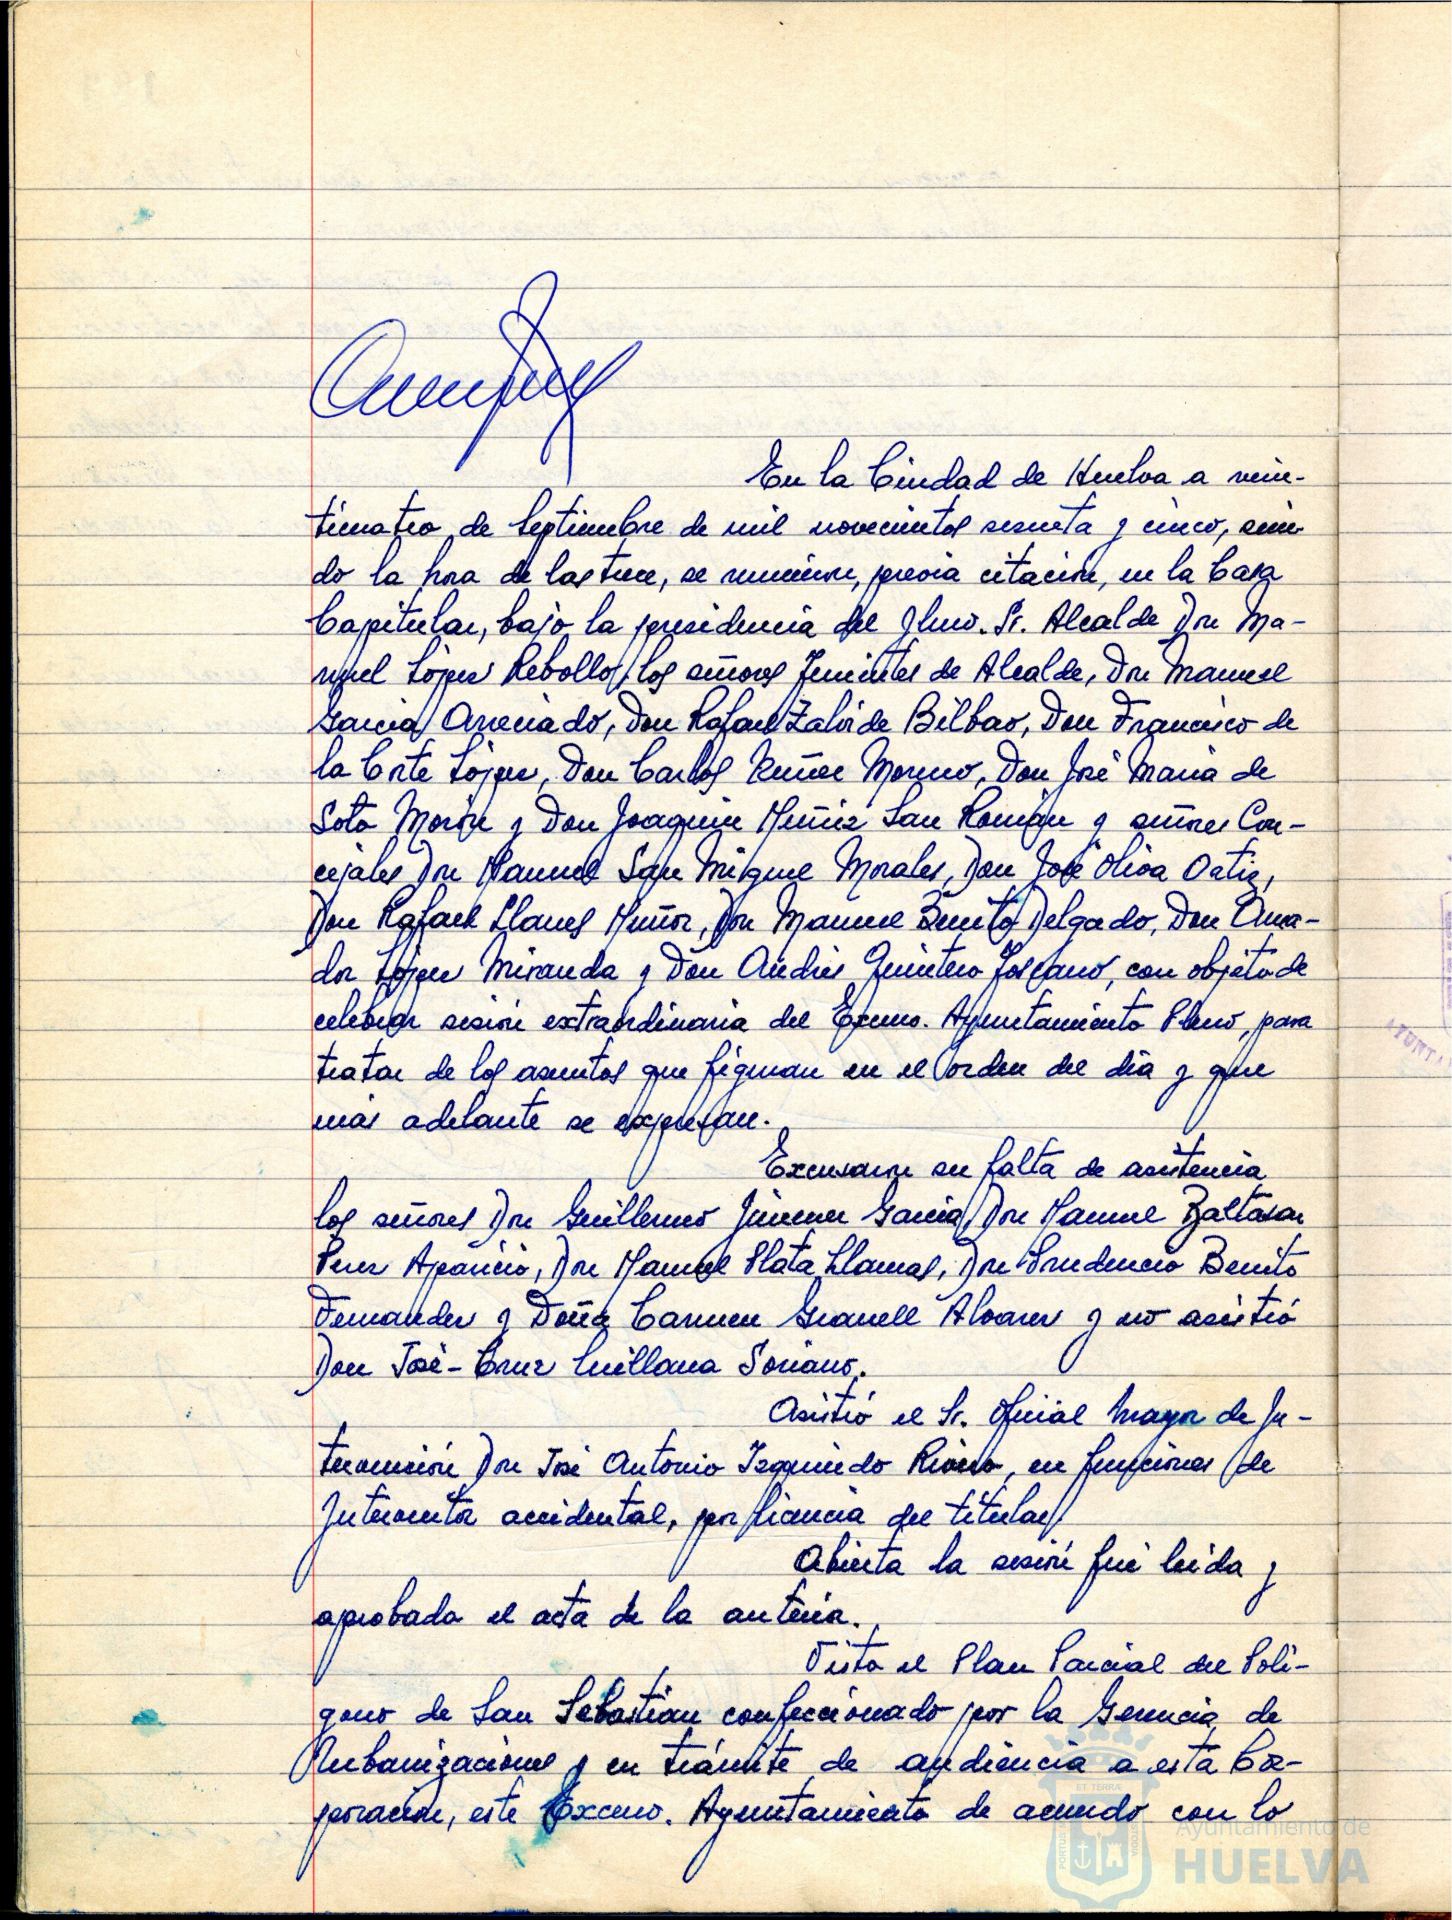 En la Ciudad de Huelva a vein-
ticuatro de Septiembre de mil novecientos sesenta y cinco, sien-
do la hora de las trece, se reunieron, previa citación, en la Casa
Capitular, bajo la presidencia del Iltmo. Sr. Alcalde Don Ma-
nuel López Rebollo, los señores Tenientes de Alcalde, Don Manuel
Garcia Arreciado, Don Rafael Zalvide Bilbao, Don Francisco de
la Corte López, Don Carlos Nuñez Moreno, Don José Maria de
Soto Morón y Don Joaquin Muñiz San Román y señores Con-
cejales Don Manuel San Miguel Morales, Don José Oliva Ortiz,
Don Rafael Llanes Muñoz, Don Manuel Benito Delgado, Don Ama-
dor López Miranda y Don Andrés Quintero Toscano, con objeto de
celebrar sesión extraordinaria del Excmo. Ayuntamiento Pleno, para
tratar de los asuntos que figuran en el orden del dia y que
más adelante se expresan.
Excusaron su falta de asistencia
los señores Don Guillermo Jimenez Garcia, Don Manuel Baltasar
Perez Aparicio, Don Manuel Plata Llamas, Don Prudencio Benito
Fernandez y Doña Carmen Granell Alvarez y no asistió
Don José-Cruz Soriano.
Asistió el Sr. Oficial Mayor de In-
tervención Don José Antonio Izquierdo Rivero, en funciones de
Interventor accidental, por licencia del titular.
Abierta la sesión fué leida y
aprobada el acta de la anterior.
Visto el Plan Parcial del Poli-
gono de San Sebastián confeccionado por la Gerencia de
Urbanizaciones y en trámite de audiencia a esta Cor-
poración, este Excmo. Ayuntamiento de acuerdo con lo
Ayuntamiento de
HUELVA